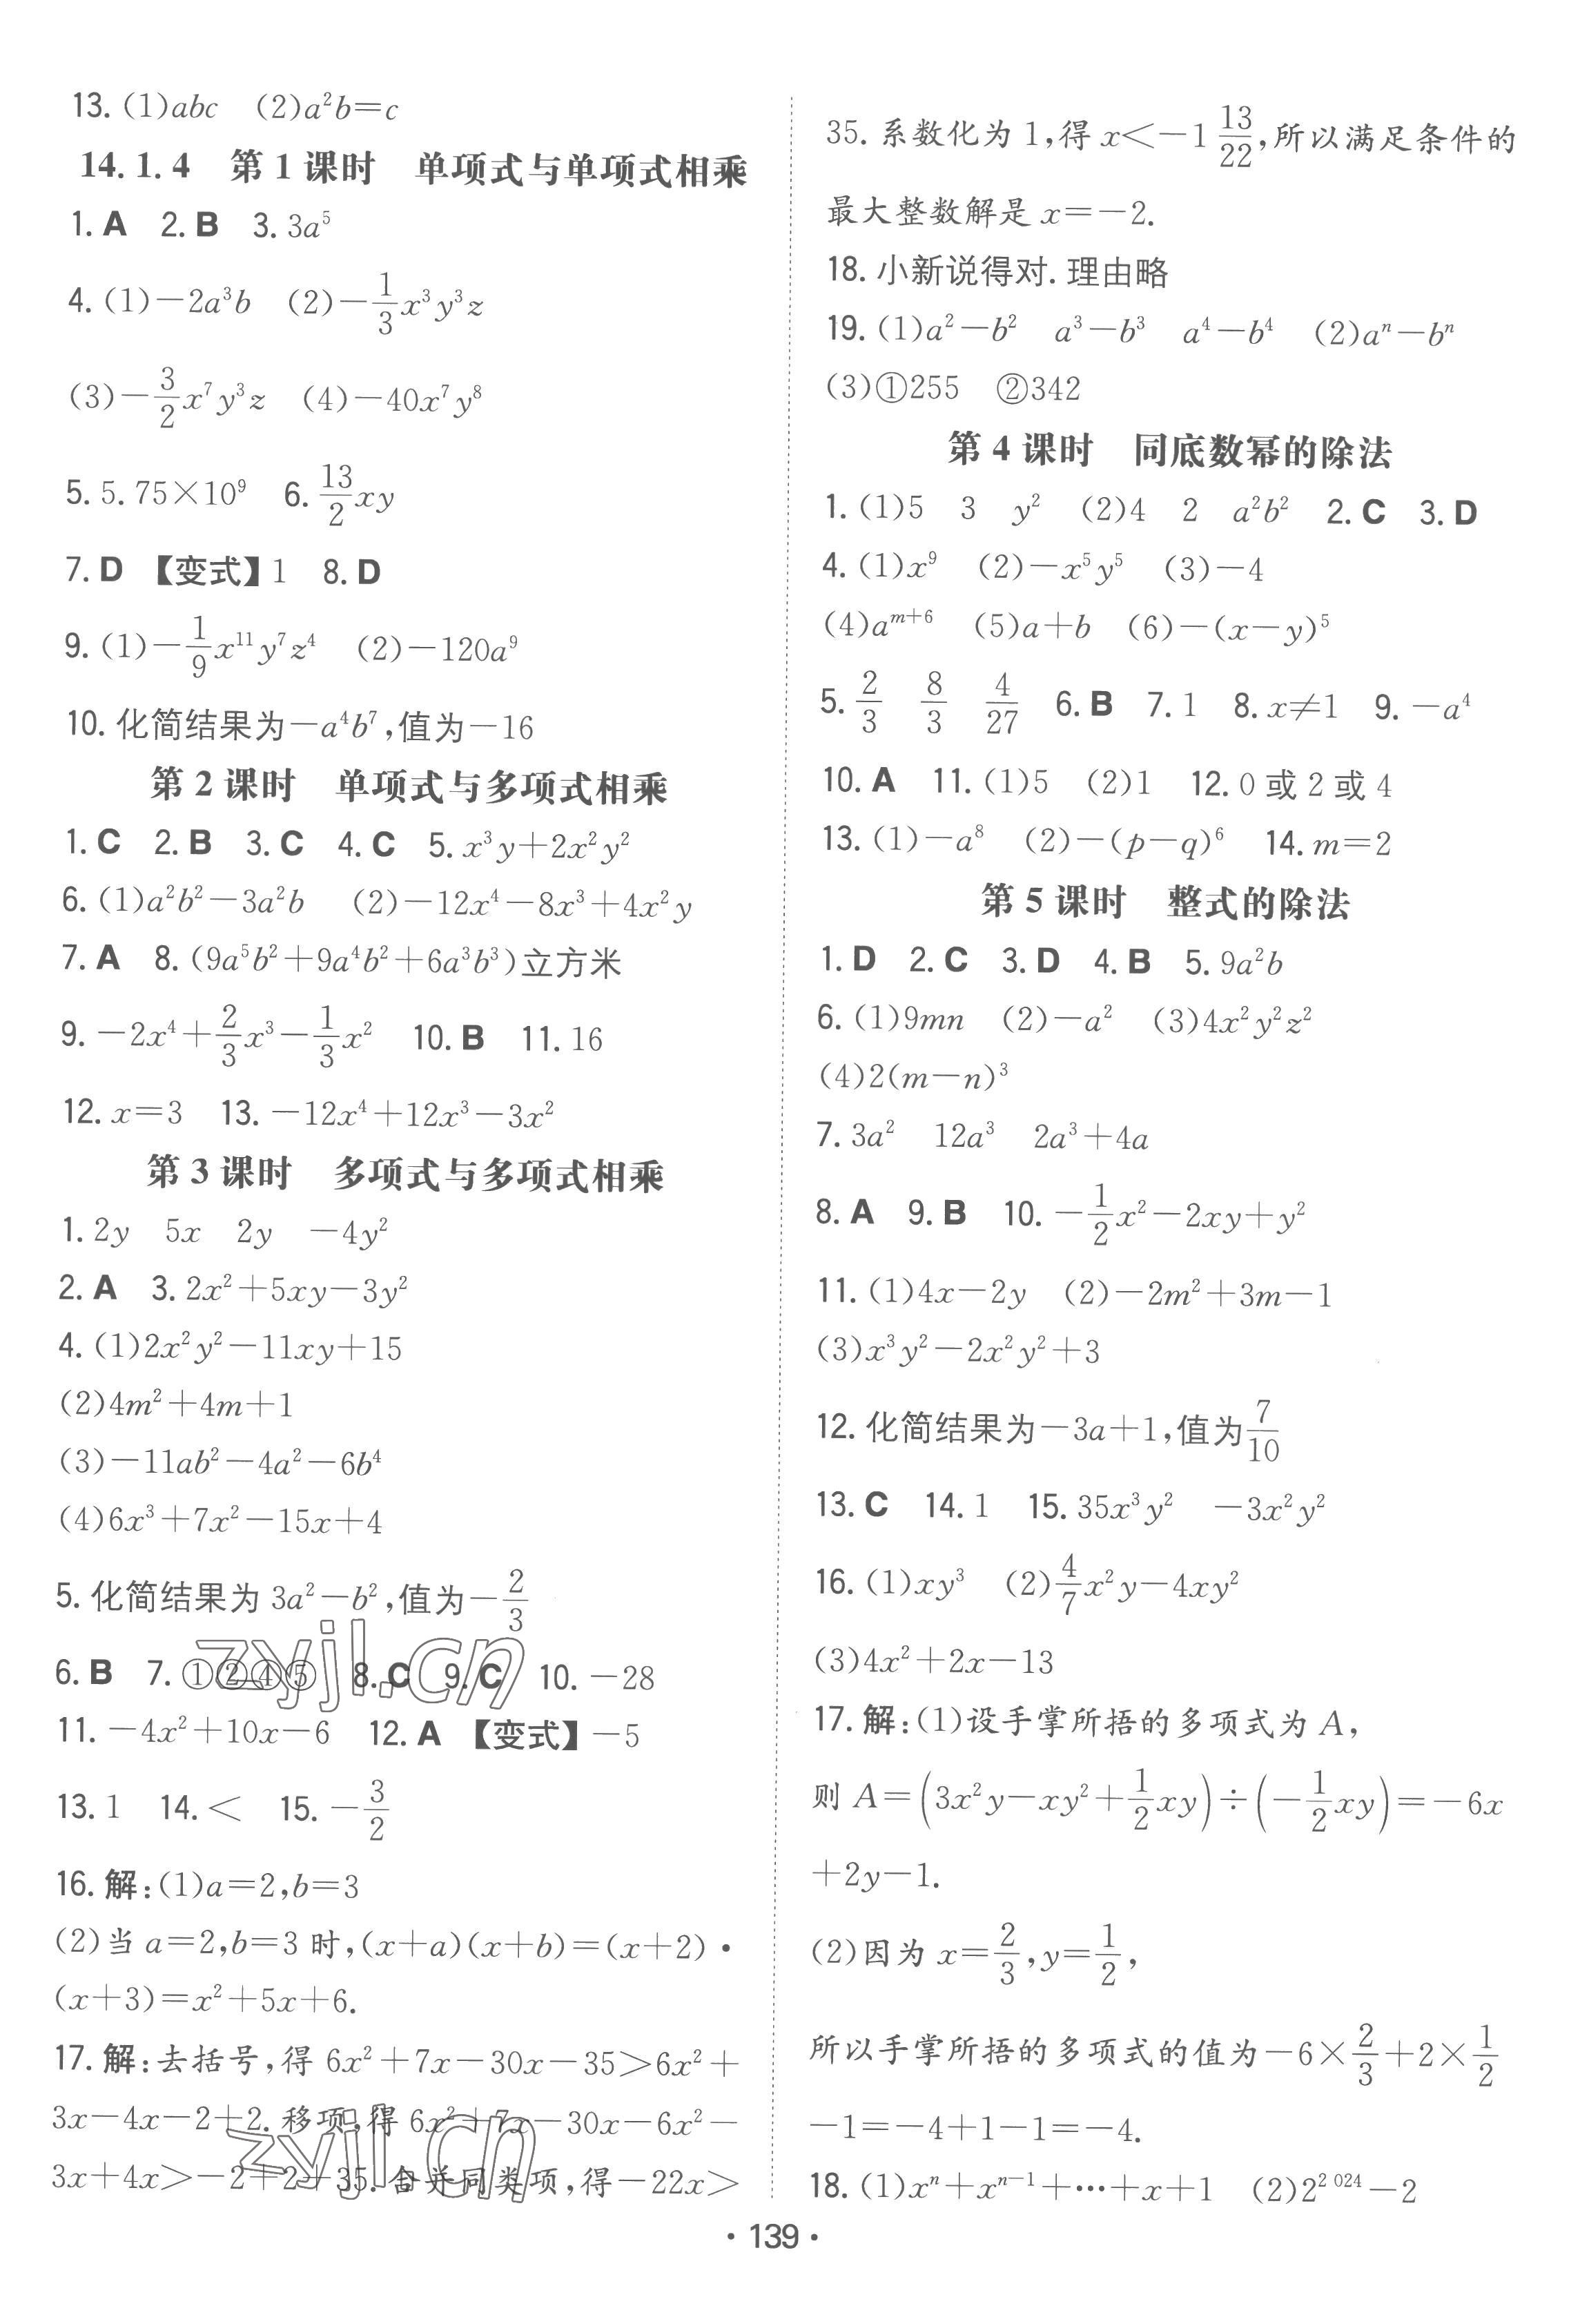 13. (1)abc (2)a²b=c
14. 1. 4 第 1 课时 单项式与单项式相乘
1. A 2. B 3. 3a⁵
4. (1)-2a³b (2)-1/3x³y³z
(3)-3/2x⁷y³z (4)-40x⁷y⁸
5. 5. 75×10⁹ 6. 13/2xy
7. D 【变式】1 8. D
9. (1)-1/9x¹¹y⁷z⁴ (2)-120a⁹
10. 化简结果为-a⁴b⁷,值为-16
第 2 课时 单项式与多项式相乘
1. C 2. B 3. C 4. C 5. x³y+2x²y²
6. (1)a²b²-3a²b (2)-12x⁴-8x³+4x²y
7. A 8. (9a⁵b²+9a⁴b²+6a³b³)立方米
9. -2x⁴+2/3x³-1/3x² 10. B 11. 16
12. x=3 13. -12x⁴+12x³-3x²
第 3 课时 多项式与多项式相乘
1. 2y 5x 2y -4y²
2. A 3. 2x²+5xy-3y²
4. (1)2x²y²-11xy+15
(2)4m²+4m+1
(3)-11ab²-4a²-6b⁴
(4)6x³+7x²-15x+4
5. 化简结果为 3a²-b²,值为-2/3
6. B 7. ①②④⑤ 8. C 9. C 10. -28
zyjl.cn
11. -4x²+10x-6 12. A 【变式】-5
13. 1 14. < 15. -3/2
16. 解:(1)a=2,b=3
(2)当 a=2,b=3 时,(x+a)(x+b)=(x+2)·
(x+3)=x²+5x+6.
17. 解:去括号,得 6x²+7x-30x-35>6x²+
3x-4x-2+2. 移项,得 6x²+7x-30x-6x²-
3x+4x>-2+2+35. 合并同类项,得-22x>
zyjl.cn
35. 系数化为 1,得 x<-1 13/22,所以满足条件的
最大整数解是 x=-2.
18. 小新说得对. 理由略
19. (1)a²-b² a³-b³ a⁴-b⁴ (2)aⁿ-bⁿ
(3)①255 ②342
第 4 课时 同底数幂的除法
1. (1)5 3 y² (2)4 2 a²b² 2. C 3. D
4. (1)x⁹ (2)-x⁵y⁵ (3)-4
(4)aᵐ⁺⁶ (5)a+b (6)-(x-y)⁵
5. 2/3 8/3 4/27 6. B 7. 1 8. x≠1 9. -a⁴
10. A 11. (1)5 (2)1 12. 0 或 2 或 4
13. (1)-a⁸ (2)-(p-q)⁶ 14. m=2
第 5 课时 整式的除法
1. D 2. C 3. D 4. B 5. 9a²b
6. (1)9mn (2)-a² (3)4x²y²z²
(4)2(m-n)³
7. 3a² 12a³ 2a³+4a
8. A 9. B 10. -1/2x²-2xy+y²
11. (1)4x-2y (2)-2m²+3m-1
(3)x³y²-2x²y²+3
12. 化简结果为-3a+1,值为7/10
13. C 14. 1 15. 35x³y² -3x²y²
16. (1)xy³ (2)4/7x²y-4xy²
(3)4x²+2x-13
17. 解:(1)设手掌所捂的多项式为 A,
则 A=(3x²y-xy²+1/2xy)÷(-1/2xy)=-6x
+2y-1.
(2)因为 x=2/3,y=1/2,
所以手掌所捂的多项式的值为-6×2/3+2×1/2
-1=-4+1-1=-4.
18. (1)xⁿ+xⁿ⁻¹+…+x+1 (2)2²⁰²⁴-2
· 139 ·